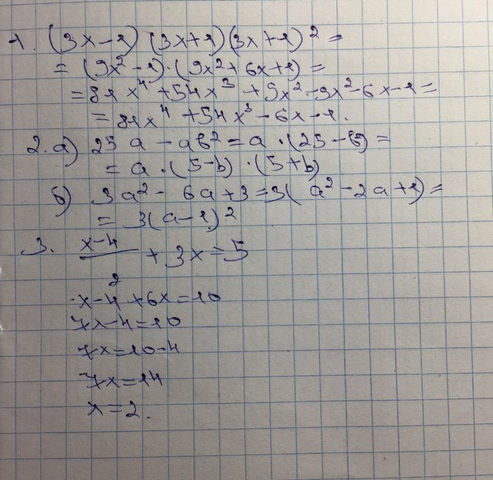 1. (3x-1)(3x+1)(3x+1)² =
= (9x²-1)·(9x²+6x+1) =
= 81x⁴+54x³+9x²-9x²-6x-1=
= 81x⁴+54x³-6x-1.
2. а) 25a-ab²=a·(25-b)=
= a·(5-b)·(5+b)
б) 3a²-6a+3=3(a²-2a+1)=
= 3(a-1)²
3. x-4/2 + 3x=5
x-4+6x=10
7x-4=10
7x=10-4
7x=14
x=2.